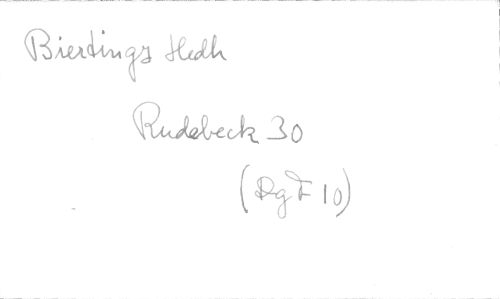 Bierdings Hedh
Rudebeck 30
(Dg F 10)